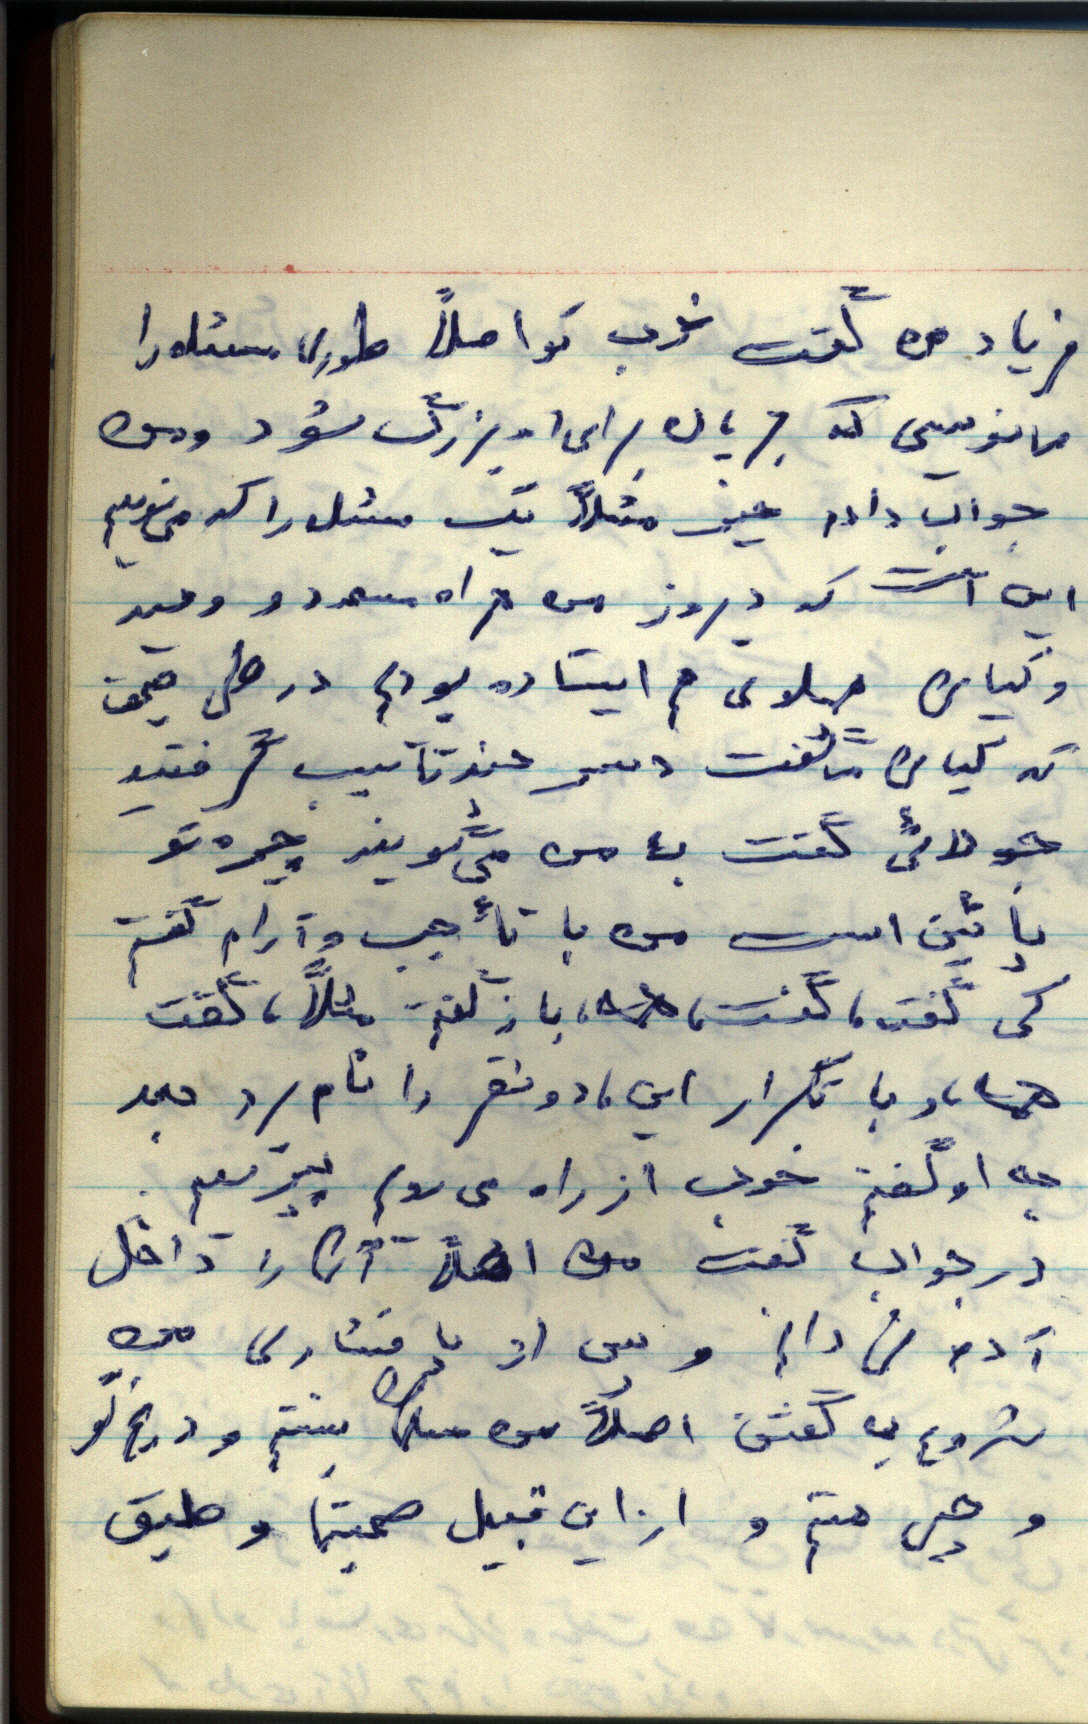 فریاد من گفت خوب تو اصلاً طوری مسئله را
مینویسی که جریان برای او بزرگ شود و من
جواب دادم خیر مثلاً یک مسئله را که می‌نویسم
این است که دیروز من همراه مسعود و وحید
و کیان پهلوی هم ایستاده بودیم در طی صحبت
که کیان میگفت دیدی چند تا سیب گرفتید
جولائی گفت به من می‌گویند چهره تو
پائین است من با تأجب و آرام گفتم
کی گفت، گفت، همه، باز گفتم مثلاً، گفت
همه، و با تکرار این، دو نفر را نام برد بعد
به او گفتم خوب از راه می‌رویم بپرسیم.
در جواب گفت من اصلاً آنها را داخل
آدم نمی‌دانم و پس از پافشاری من
شروع به گفتن اصلاً من مسلمان نیستم و دروغگو
و چی هستم و از این قبیل صحبتها و طبق